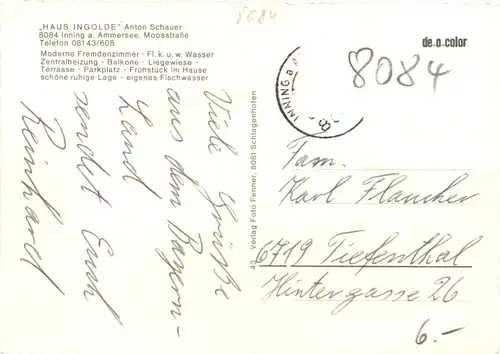 8084
„HAUS INGOLDE" Anton Schauer
8084 Inning a. Ammersee, Moosstraße
Telefon 08143/608
Moderne Fremdenzimmer - Fl. k. u. w. Wasser
Zentralheizung - Balkone - Liegewiese -
Terrasse - Parkplatz - Frühstück im Hause
schöne ruhige Lage - eigenes Fischwasser
de-o-color
8084
INNING a
Viele Grüße
aus dem Bayern-
Land
sendet Euch
Reinhard
43 Verlag Foto Fenner, 8081 Schlagenhofen
Fam.
Karl Flaucher
6719 Tiefenthal
Hintergasse 26
6.-